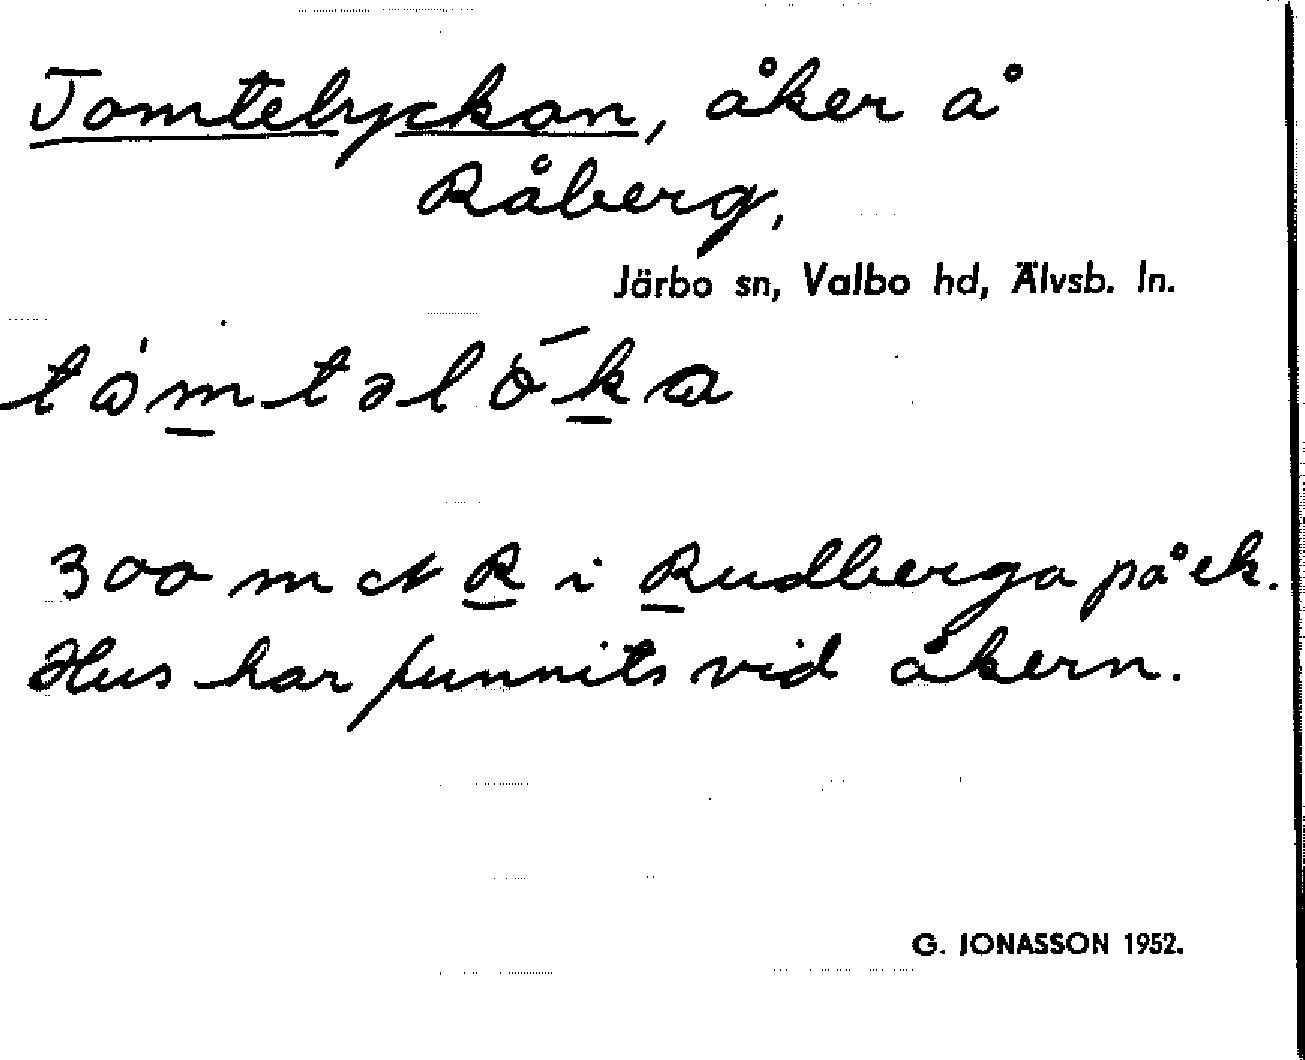 Tomtelyckan, åker å
Råberg,
Järbo sn, Valbo hd, Älvsb. ln.
300 m N R i Rudberga på ek.
Hus har funnits vid åkern.
G. JONASSON 1952.